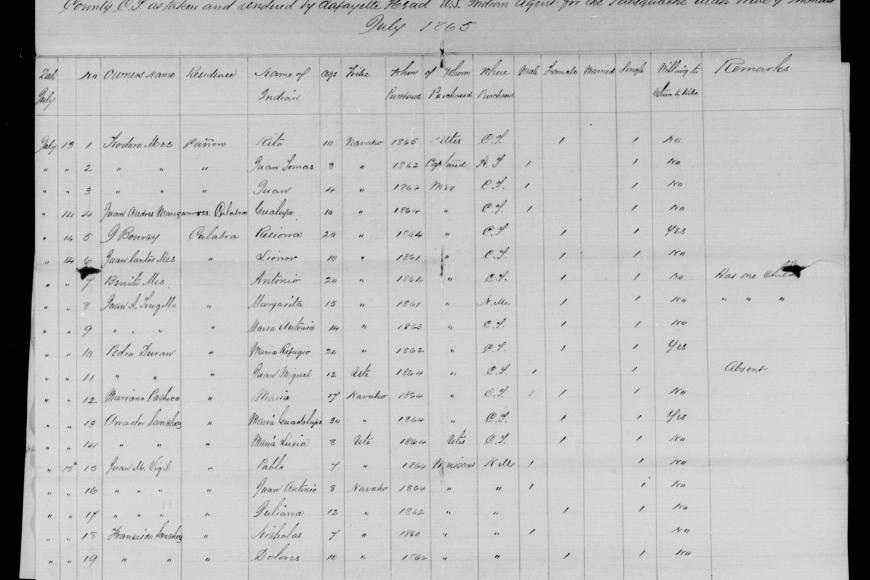 County, C.T. as taken and rendered by Lafayette Head U.S. Indian Agent for the
July 1865
Date No Owners Name Residence Name of Age Tribe When of Whom Where Male Female Married Single Willing to Remarks
July Indian Purchased Purchased Purchased return to tribe
July 13 1 Teodoro Mes Cañon Rito 10 Navaho 1865 Utes C.T. 1 1 No
" " 2 " " " Juan Tomas 8 " 1862 Captured N.T. 1 1 No
" " 3 " " " Juan 4 " 1862 Mes C.T. 1 1 No
" 14 4 Juan Andres Manzanares Culabra Guadalupe 10 " 1864 " C.T. 1 1 No
" 14 5 Culabra 20 " 1864 " C.T. 1 1 Yes
" 14 6 Juan Santos Mes " Lionor 10 " 1861 " C.T. 1 1 No
" " 7 Benito Mes " Antonio 20 " 1862 " C.T. 1 1 No Has one Child
" " 8 Juan A. Trugillo " Margarita 15 " 1861 " N.Mo 1 1 No " " "
" " 9 " " " Maria Antonia 14 " 1862 " C.T. 1 1 No
" " 10 Pedro Duran " Maria Refugio 20 " 1862 " C.T. 1 1 Yes
" " 11 " " " Juan Miguel 12 Ute 1864 " C.T. 1 1 Absent
" " 12 Mariano Pacheco " Maria 17 Navaho 1864 " C.T. 1 1 1 No
" " 13 Amador Sanchez " Maria Guadalupe 30 " 1864 " C.T. 1 1 Yes
" " 14 " " " Maria Lucia 8 Ute 1864 Utes C.T. 1 1 No
" 15 15 Juan M. Vigil " Pablo 7 " 1864 Mexicans N.Mo 1 1 No
" " 16 " " " " Juan Antonio 8 Navaho 1864 " " 1 1 No
" " 17 " " " " Juliana 12 " 1862 " " 1 1 No
" " 18 Francisco Sanchez " Nicholas 7 " 1860 " " 1 No
" " 19 " " " Dolores 10 " 1862 " " 1 1 No